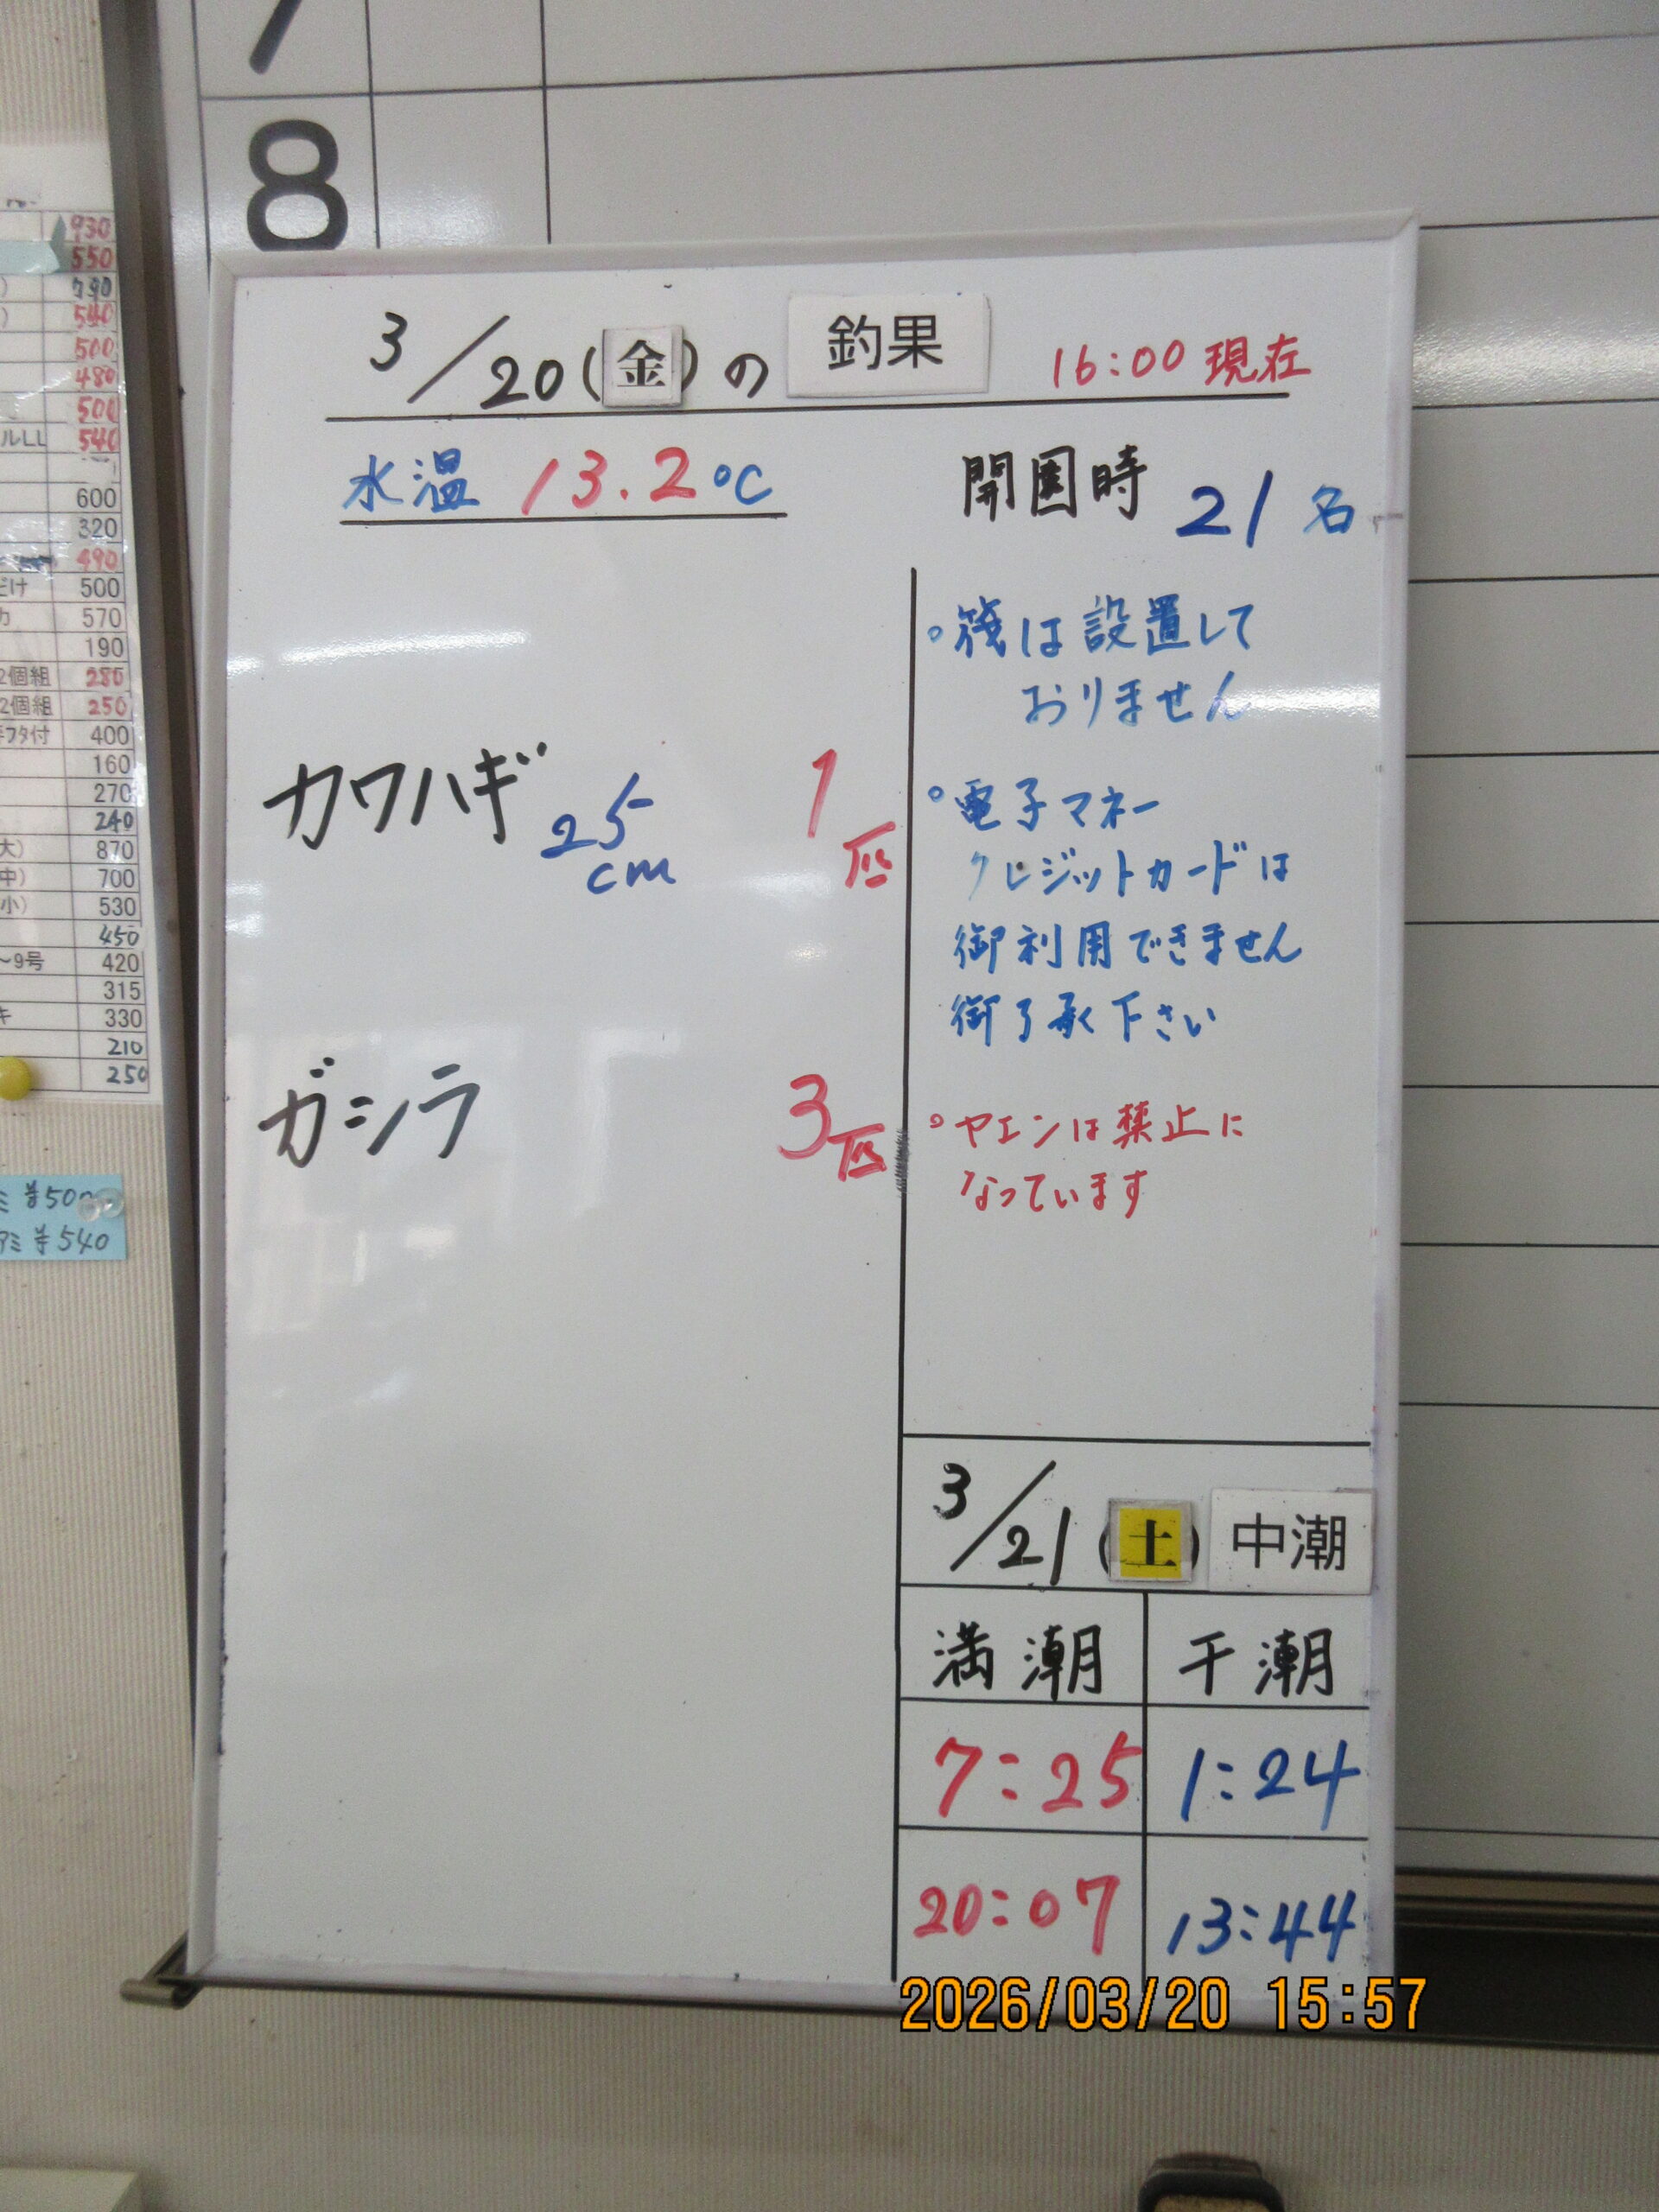 7
8
930
550
790
540
500
480
500
ルLL 540
600
320
490
だけ 500
カ 570
190
2個組 280
2個組 250
フタ付 400
160
270
240
大) 870
中) 700
小) 530
450
～9号 420
315
キ 330
210
250
ミ ¥500
アミ ¥540
3/20(金)の 釣果 16:00 現在
水温 13.2℃
開園時 21名
カワハギ 25cm 1匹
ガシラ 3匹
◦筏は設置して
おりません
◦電子マネー
クレジットカードは
御利用できません
御了承下さい
◦ヤエンは禁止に
なっています
3/21(土) 中潮
満潮 干潮
7:25 1:24
20:07 13:44
2026/03/20 15:57